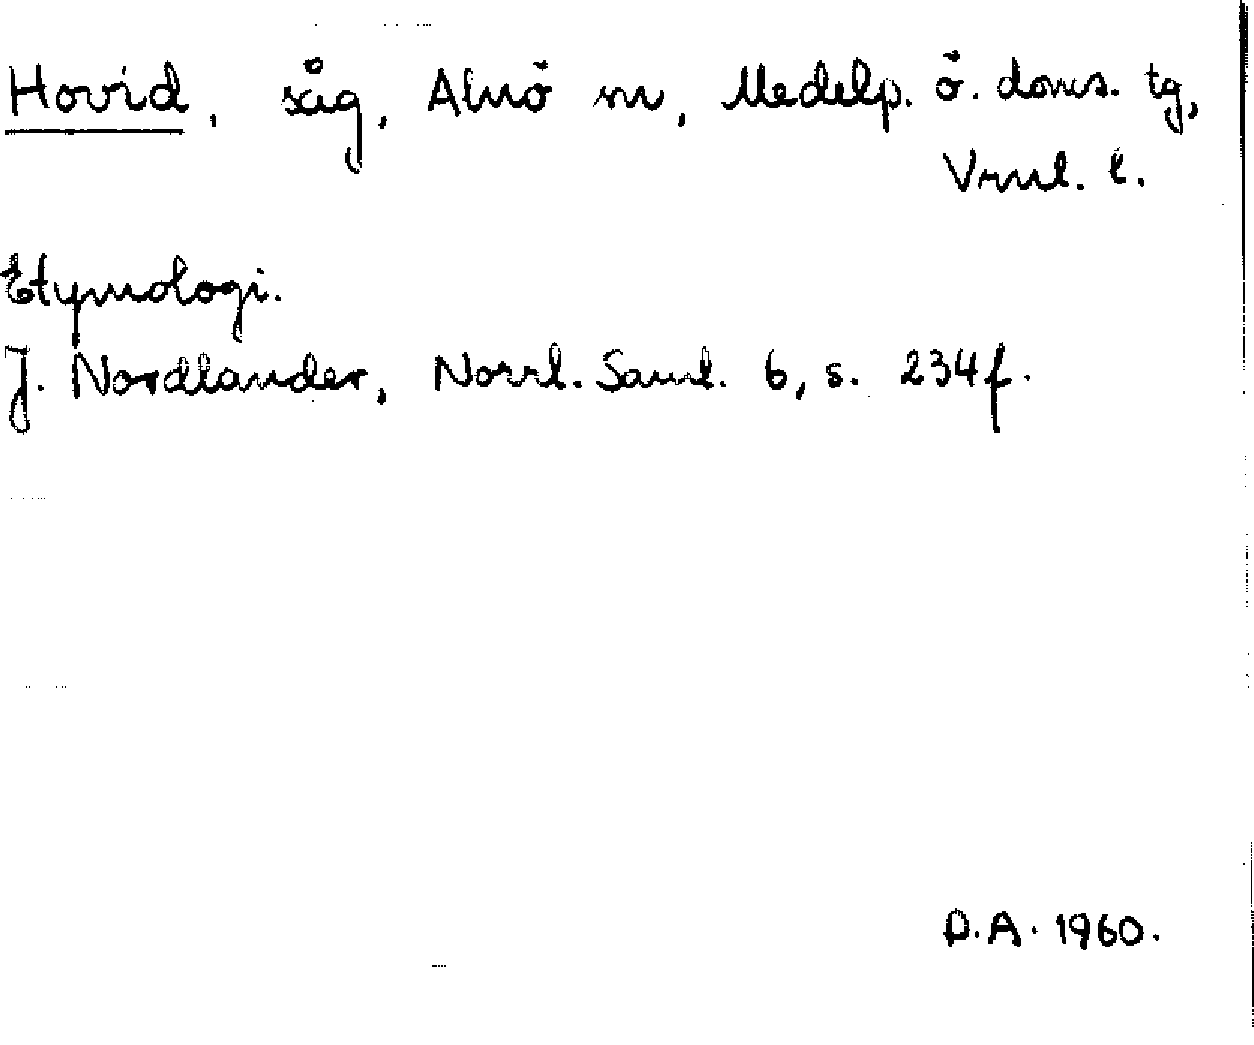 Hovid, såg, Alnö sn, Medelp. ö. doms. tg,
Vrnl. l.
Etymologi.
J. Nordlander, Norrl. Saml. 6, s. 234 f.
D.A. 1960.